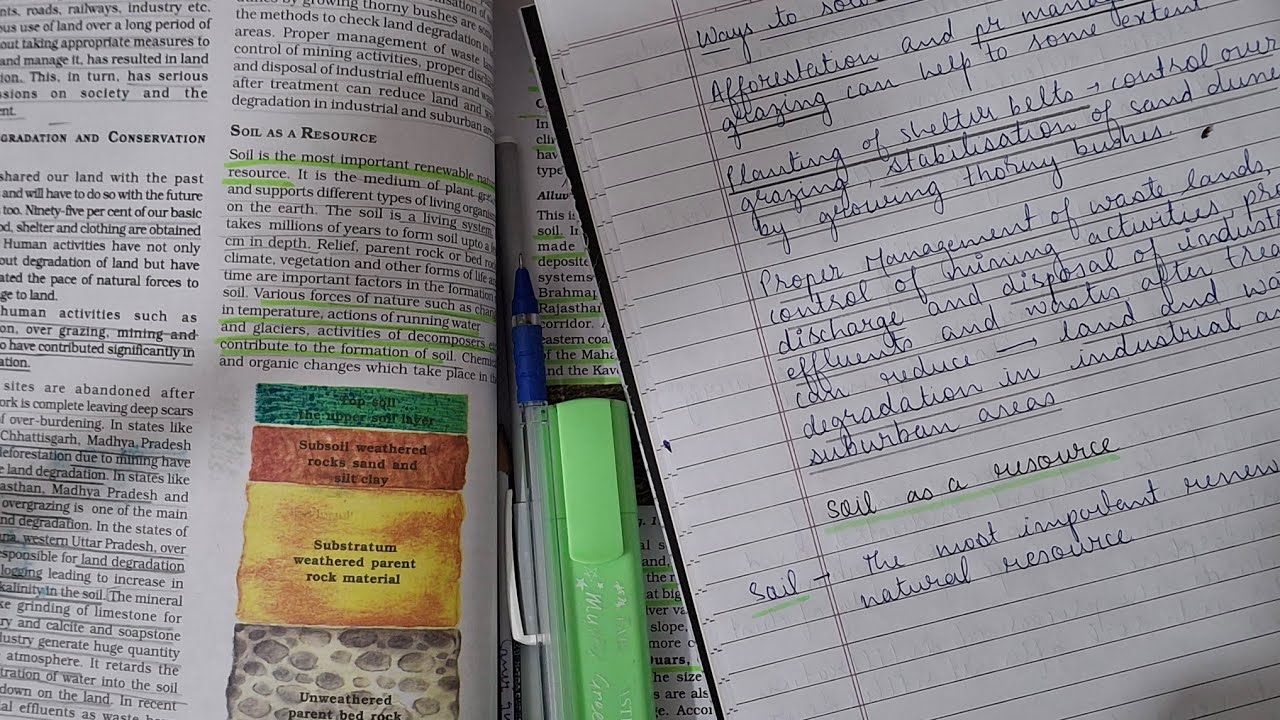 nts, roads, railways, industry etc.
ous use of land over a long period of
out taking appropriate measures to
and manage it, has resulted in land
tion. This, in turn, has serious
ssions on society and the
ent.
GRADATION AND CONSERVATION
shared our land with the past
and will have to do so with the future
too. Ninety-five per cent of our basic
od, shelter and clothing are obtained
Human activities have not only
out degradation of land but have
ated the pace of natural forces to
ge to land.
human activities such as
on, over grazing, mining and
o have contributed significantly in
ation.
sites are abandoned after
ork is complete leaving deep scars
f over-burdening. In states like
Chhattisgarh, Madhya Pradesh
deforestation due to mining have
e land degradation. In states like
asthan, Madhya Pradesh and
overgrazing is one of the main
nd degradation. In the states of
western Uttar Pradesh, over
sponsible for land degradation
logging leading to increase in
kalinity in the soil. The mineral
ke grinding of limestone for
ry and calcite and soapstone
ustry generate huge quantity
atmosphere. It retards the
tration of water into the soil
down on the land. In recent
ial effluents as waste
by growing thorny bushes are some
the methods to check land degradation in
areas. Proper management of waste lan
control of mining activities, proper disch
and disposal of industrial effluents and w
after treatment can reduce land and w
degradation in industrial and suburban are
SOIL AS A RESOURCE
Soil is the most important renewable nat
resource. It is the medium of plant gro
and supports different types of living organis
on the earth. The soil is a living system
takes millions of years to form soil upto a fe
cm in depth. Relief, parent rock or bed rock
climate, vegetation and other forms of life an
time are important factors in the formation
soil. Various forces of nature such as chan
in temperature, actions of running water
and glaciers, activities of decomposers
contribute to the formation of soil. Chemic
and organic changes which take place in the
Top soil
the upper soil layer
Subsoil weathered
rocks sand and
silt clay
Substratum
weathered parent
rock material
Unweathered
parent bed rock
In
cli
have
type
Alluv
This is
soil. In
made
deposite
systems
Brahmap
Rajasthan
corridor.
eastern coa
of the Maha
and the Kave
Ways to
Afforestation and pr manag
grazing can help to some extent
Planting of shelter belts → control over
grazing, stabilisation of sand dune
by growing thorny bushes.
Proper Management of waste lands,
control of mining activities pr
discharge and disposal of indust
effluents and wastes after trea
can reduce → land and wa
degradation in industrial a
suburban areas
Soil as a resource
Soil → the most important renew
natural resource